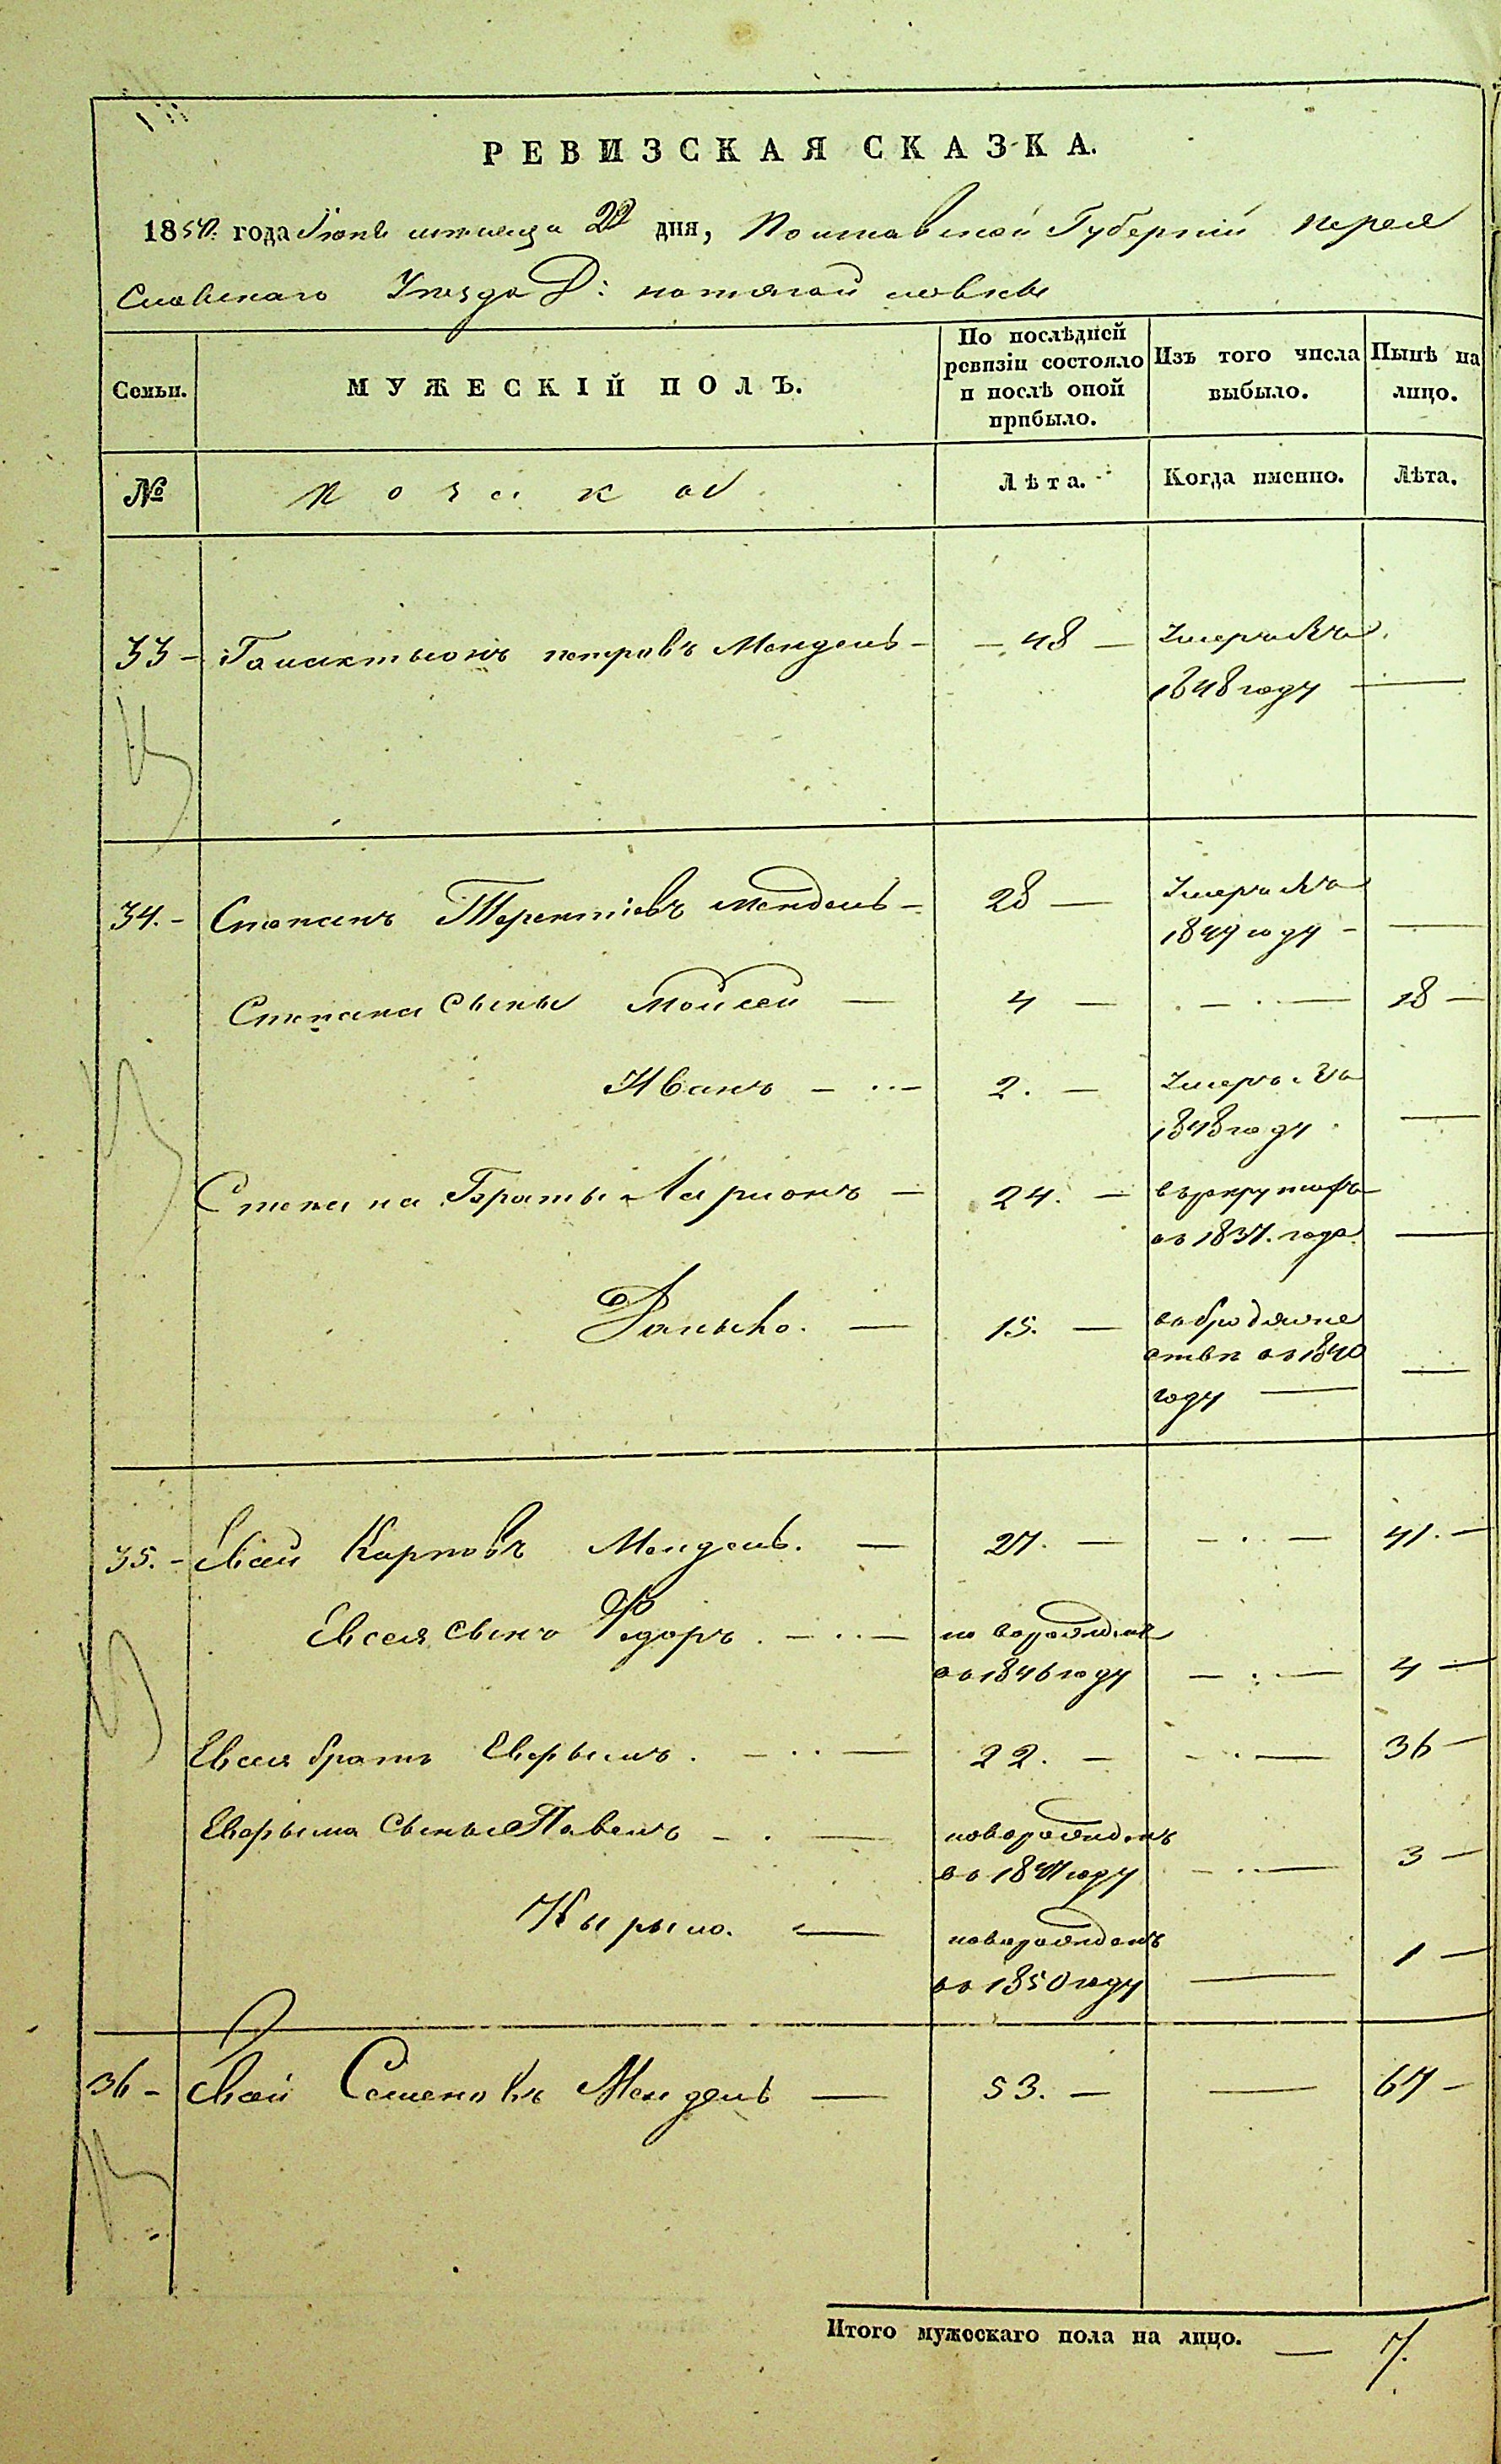 РЕВИЗСКАЯ СКАЗКА.
1850. года Июня месяца 22 дня, Полтавской Губерніи Перея
Славскаго Уезда Д:
Семьи.
МУЖЕСКІЙ ПОЛЪ.
По послѣдней ревизіи состояло и послѣ оной прибыло.
Изъ того числа выбыло.
Нынѣ на лицо.
№
Лѣта.
Когда именно.
Лѣта.
33 - Галактыонъ петровъ Мендель - - 48 - Умеръ въ
1848 году —
34. - Степанъ Терентіевъ Мендель - 28 — Умеръ въ
1849 году - —
Степана Сыны Мойсей — 4 — - . — 18 —
Иванъ - ... 2. — Умеръ въ
1848 году —
Степана Браты Ларионъ — 24. —
1837. года —
Панько. — 15. — въ бродяже
стве въ 1840 —
году —
35. - Карповъ Мендель. — 27. — - . . — 41. —
Евсея Сынъ Федоръ . - . . — новорожденъ
въ 1846 году - . — 4 —
Евсея братъ . - . . — 22. — - . — 36 —
Сыны Павелъ - . — новорожденъ
въ 1847 году - . — 3 —
Кырыло. — новорожденъ
въ 1850 году — 1 —
36 - Семеновъ Мендель — 53. — — 67 —
Итого мужескаго пола на лицо. — 7.